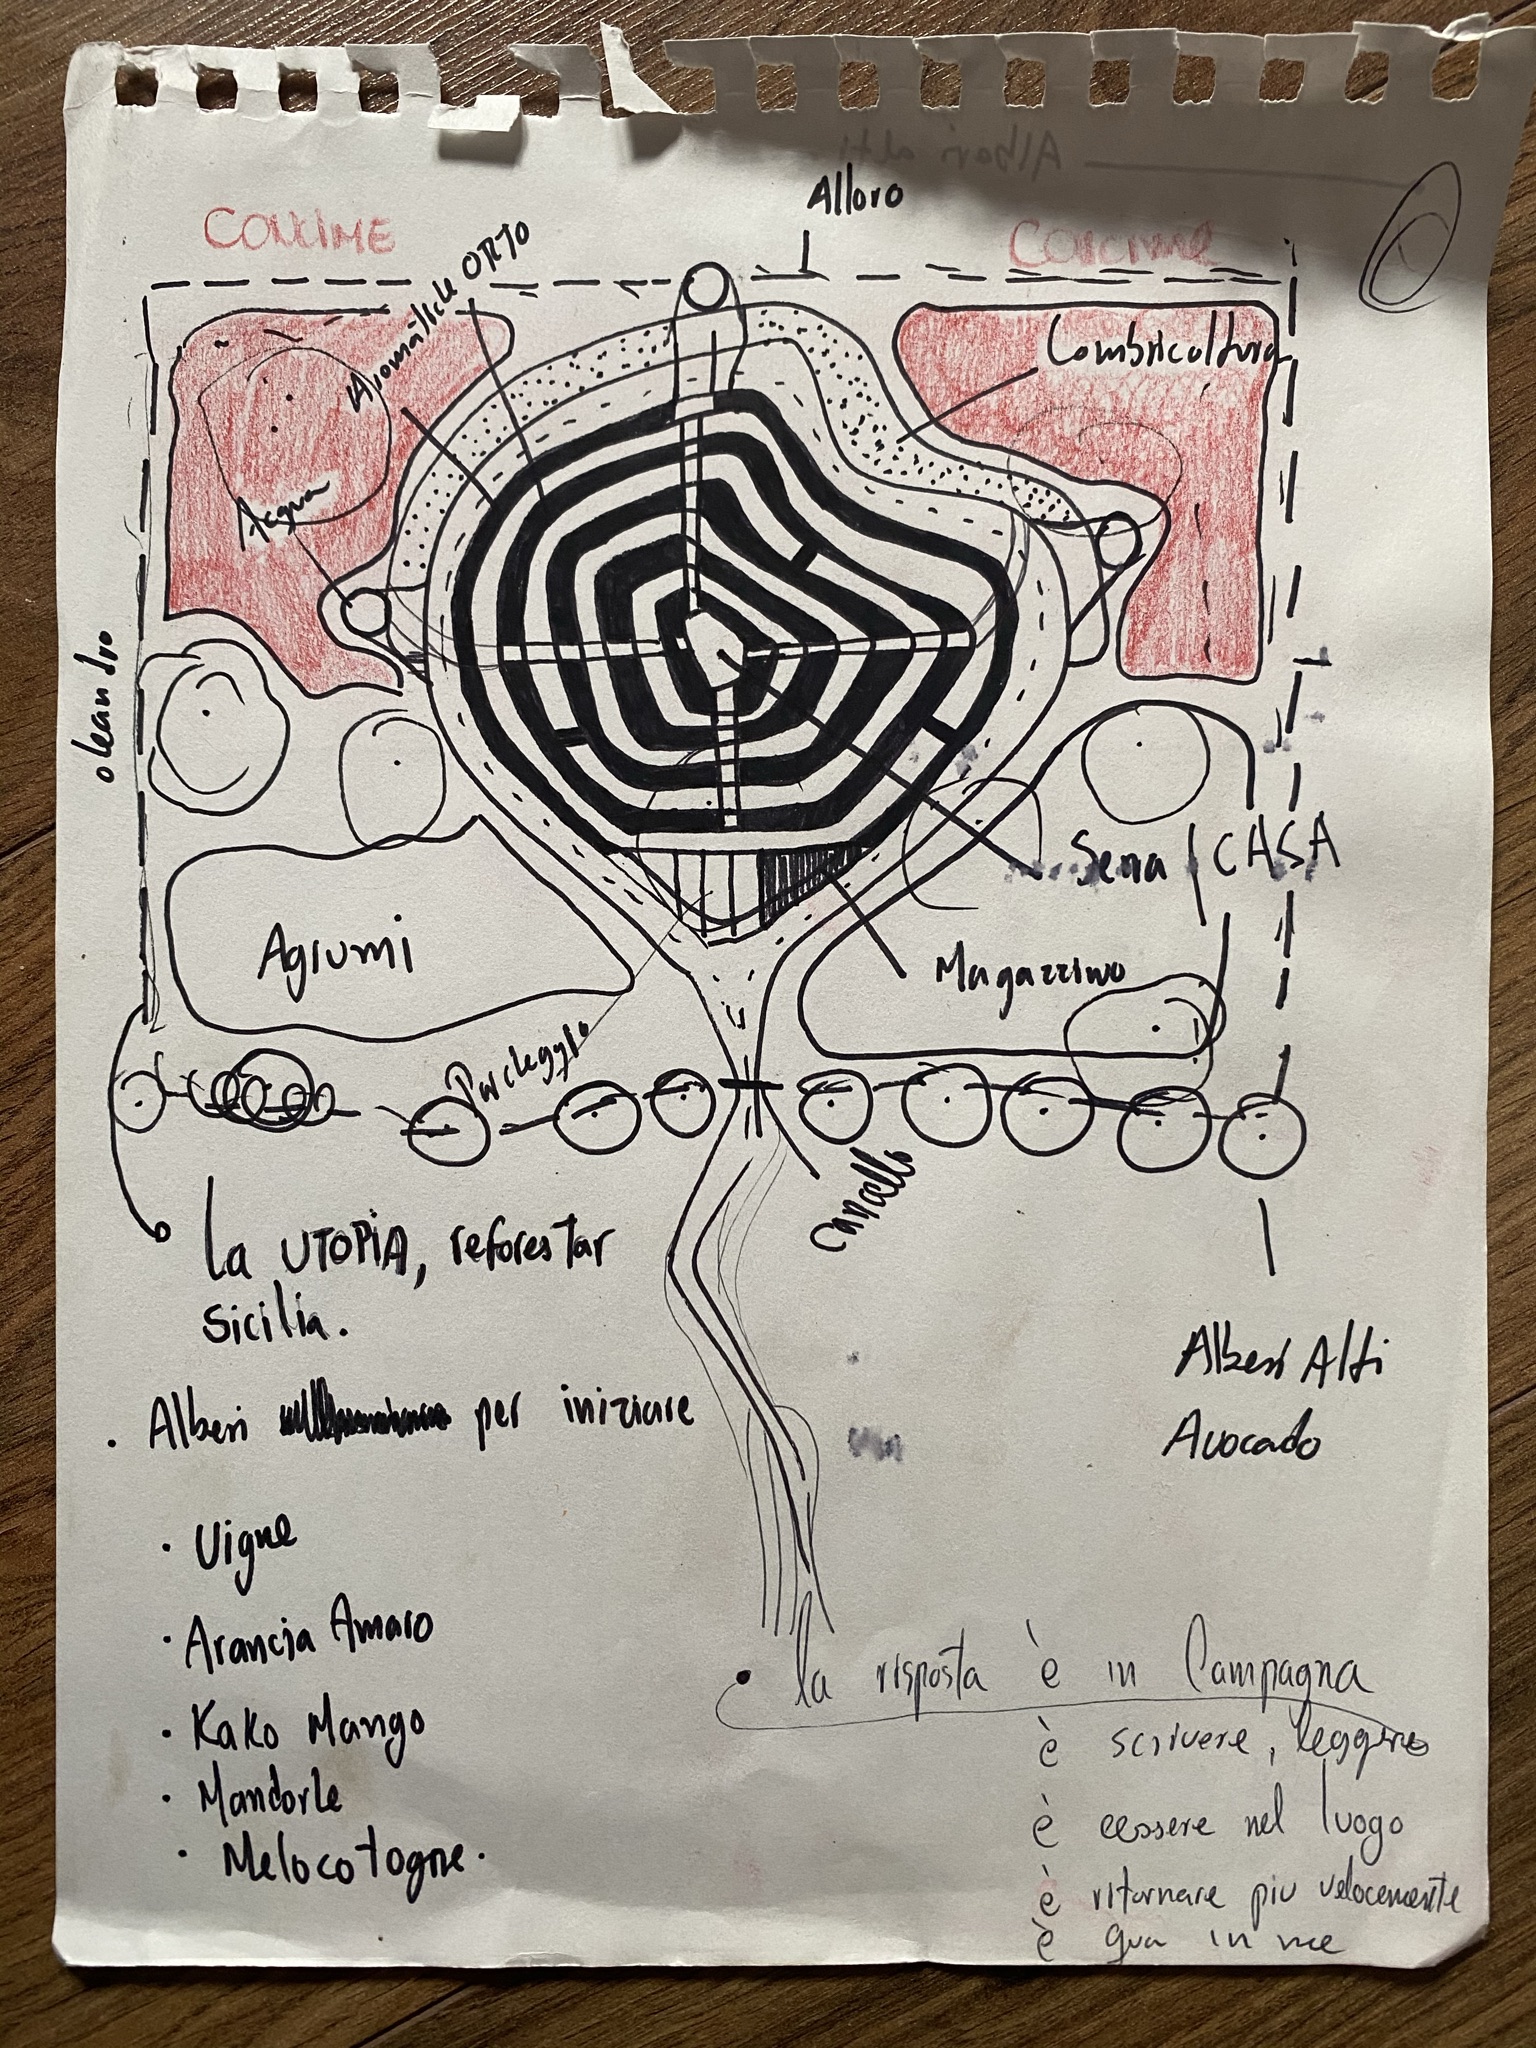 Alberi alti
Alloro
CONCIME
CONCIME
ORTO
Aromatiche
Lombricoltura
Acqua
oleandro
Sena
CASA
Agrumi
Magazzino
Parcheggio
Cancello
La UTOPIA, reforestar
Sicilia.
Alberi Alti
Avocado
· Alberi per iniziare
· Vigne
· Arancia Amaro
· Kako Mango
· Mandorle
· Melocotogne.
la risposta è in Campagna
è scrivere, leggere
è eessere nel luogo
è ritornare piu velocemente
è qua in me